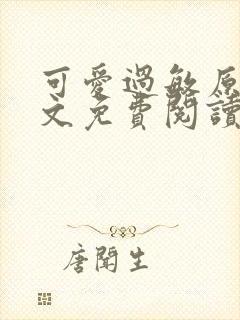 可愛過敏原
文免費閱讀
唐聞生